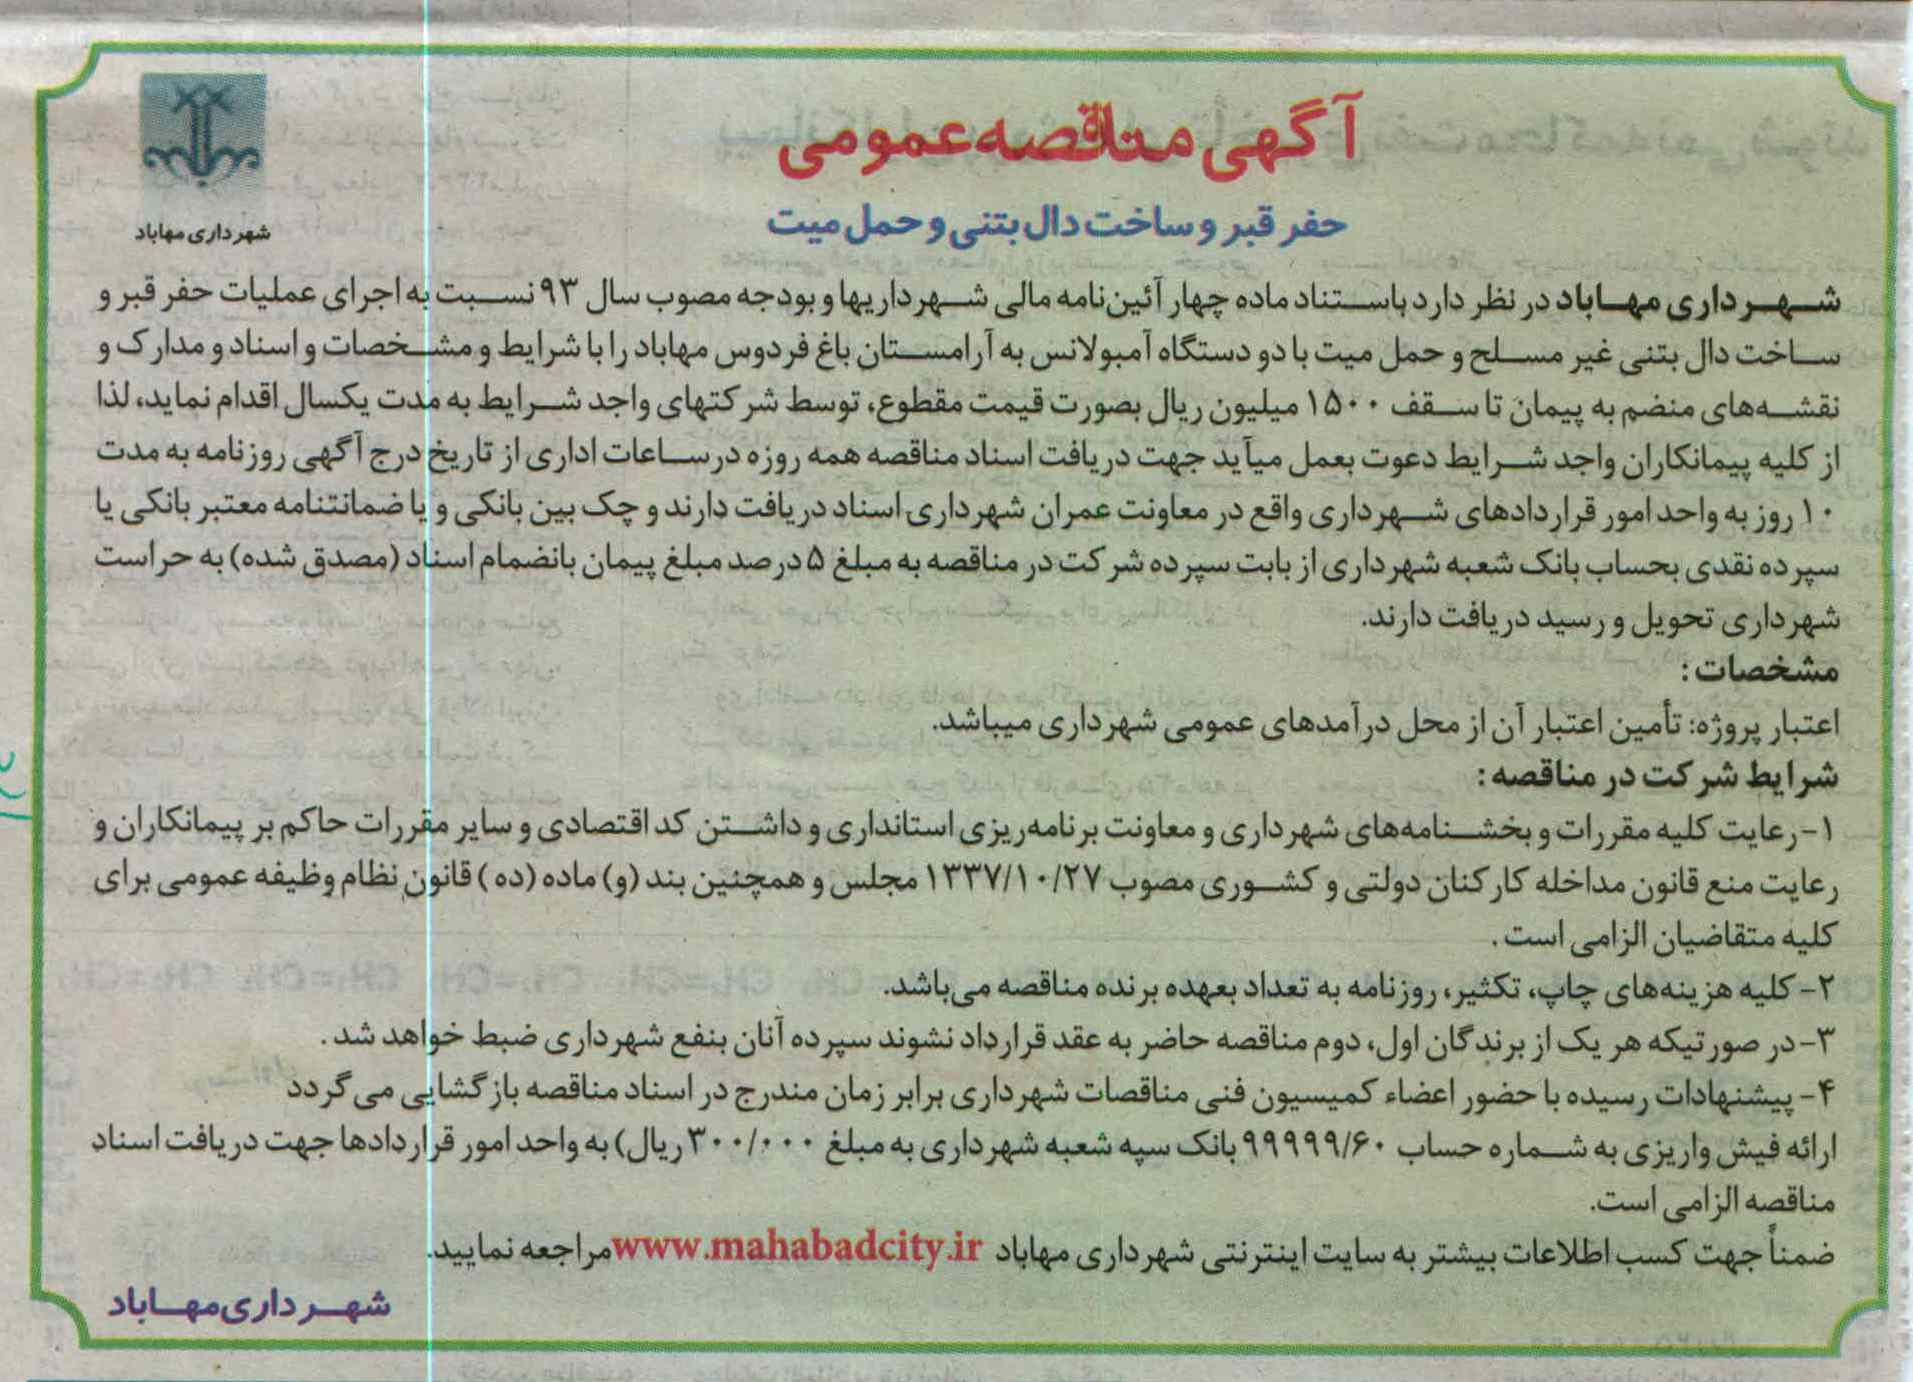 شهرداری مهاباد
آگهی مناقصه عمومی
حفر قبر و ساخت دال بتنی و حمل میت
شهرداری مهاباد در نظر دارد باستناد ماده چهار آئین‌نامه مالی شهرداریها و بودجه مصوب سال ۹۳ نسبت به اجرای عملیات حفر قبر و
ساخت دال بتنی غیر مسلح و حمل میت با دو دستگاه آمبولانس به آرامستان باغ فردوس مهاباد را با شرایط و مشخصات و اسناد و مدارک و
نقشه‌های منضم به پیمان تا سقف ۱۵۰۰ میلیون ریال بصورت قیمت مقطوع، توسط شرکتهای واجد شرایط به مدت یکسال اقدام نماید، لذا
از کلیه پیمانکاران واجد شرایط دعوت بعمل میآید جهت دریافت اسناد مناقصه همه روزه در ساعات اداری از تاریخ درج آگهی روزنامه به مدت
۱۰ روز به واحد امور قراردادهای شهرداری واقع در معاونت عمران شهرداری اسناد دریافت دارند و چک بین بانکی و یا ضمانتنامه معتبر بانکی یا
سپرده نقدی بحساب بانک شعبه شهرداری از بابت سپرده شرکت در مناقصه به مبلغ ۵ درصد مبلغ پیمان بانضمام اسناد (مصدق شده) به حراست
شهرداری تحویل و رسید دریافت دارند.
مشخصات:
اعتبار پروژه: تأمین اعتبار آن از محل درآمدهای عمومی شهرداری میباشد.
شرایط شرکت در مناقصه:
۱- رعایت کلیه مقررات و بخشنامه‌های شهرداری و معاونت برنامه‌ریزی استانداری و داشتن کد اقتصادی و سایر مقررات حاکم بر پیمانکاران و
رعایت منع قانون مداخله کارکنان دولتی و کشوری مصوب ۱۳۳۷/۱۰/۲۷ مجلس و همچنین بند (و) ماده (ده) قانون نظام وظیفه عمومی برای
کلیه متقاضیان الزامی است.
۲- کلیه هزینه‌های چاپ، تکثیر، روزنامه به تعداد بعهده برنده مناقصه می‌باشد.
۳- در صورتیکه هر یک از برندگان اول، دوم مناقصه حاضر به عقد قرارداد نشوند سپرده آنان بنفع شهرداری ضبط خواهد شد.
۴- پیشنهادات رسیده با حضور اعضاء کمیسیون فنی مناقصات شهرداری برابر زمان مندرج در اسناد مناقصه بازگشایی می گردد
ارائه فیش واریزی به شماره حساب ۹۹۹۹۹/۶۰ بانک سپه شعبه شهرداری به مبلغ ۳۰۰/۰۰۰ ریال) به واحد امور قراردادها جهت دریافت اسناد
مناقصه الزامی است.
ضمناً جهت کسب اطلاعات بیشتر به سایت اینترنتی شهرداری مهاباد www.mahabadcity.ir مراجعه نمایید.
شهرداری مهاباد